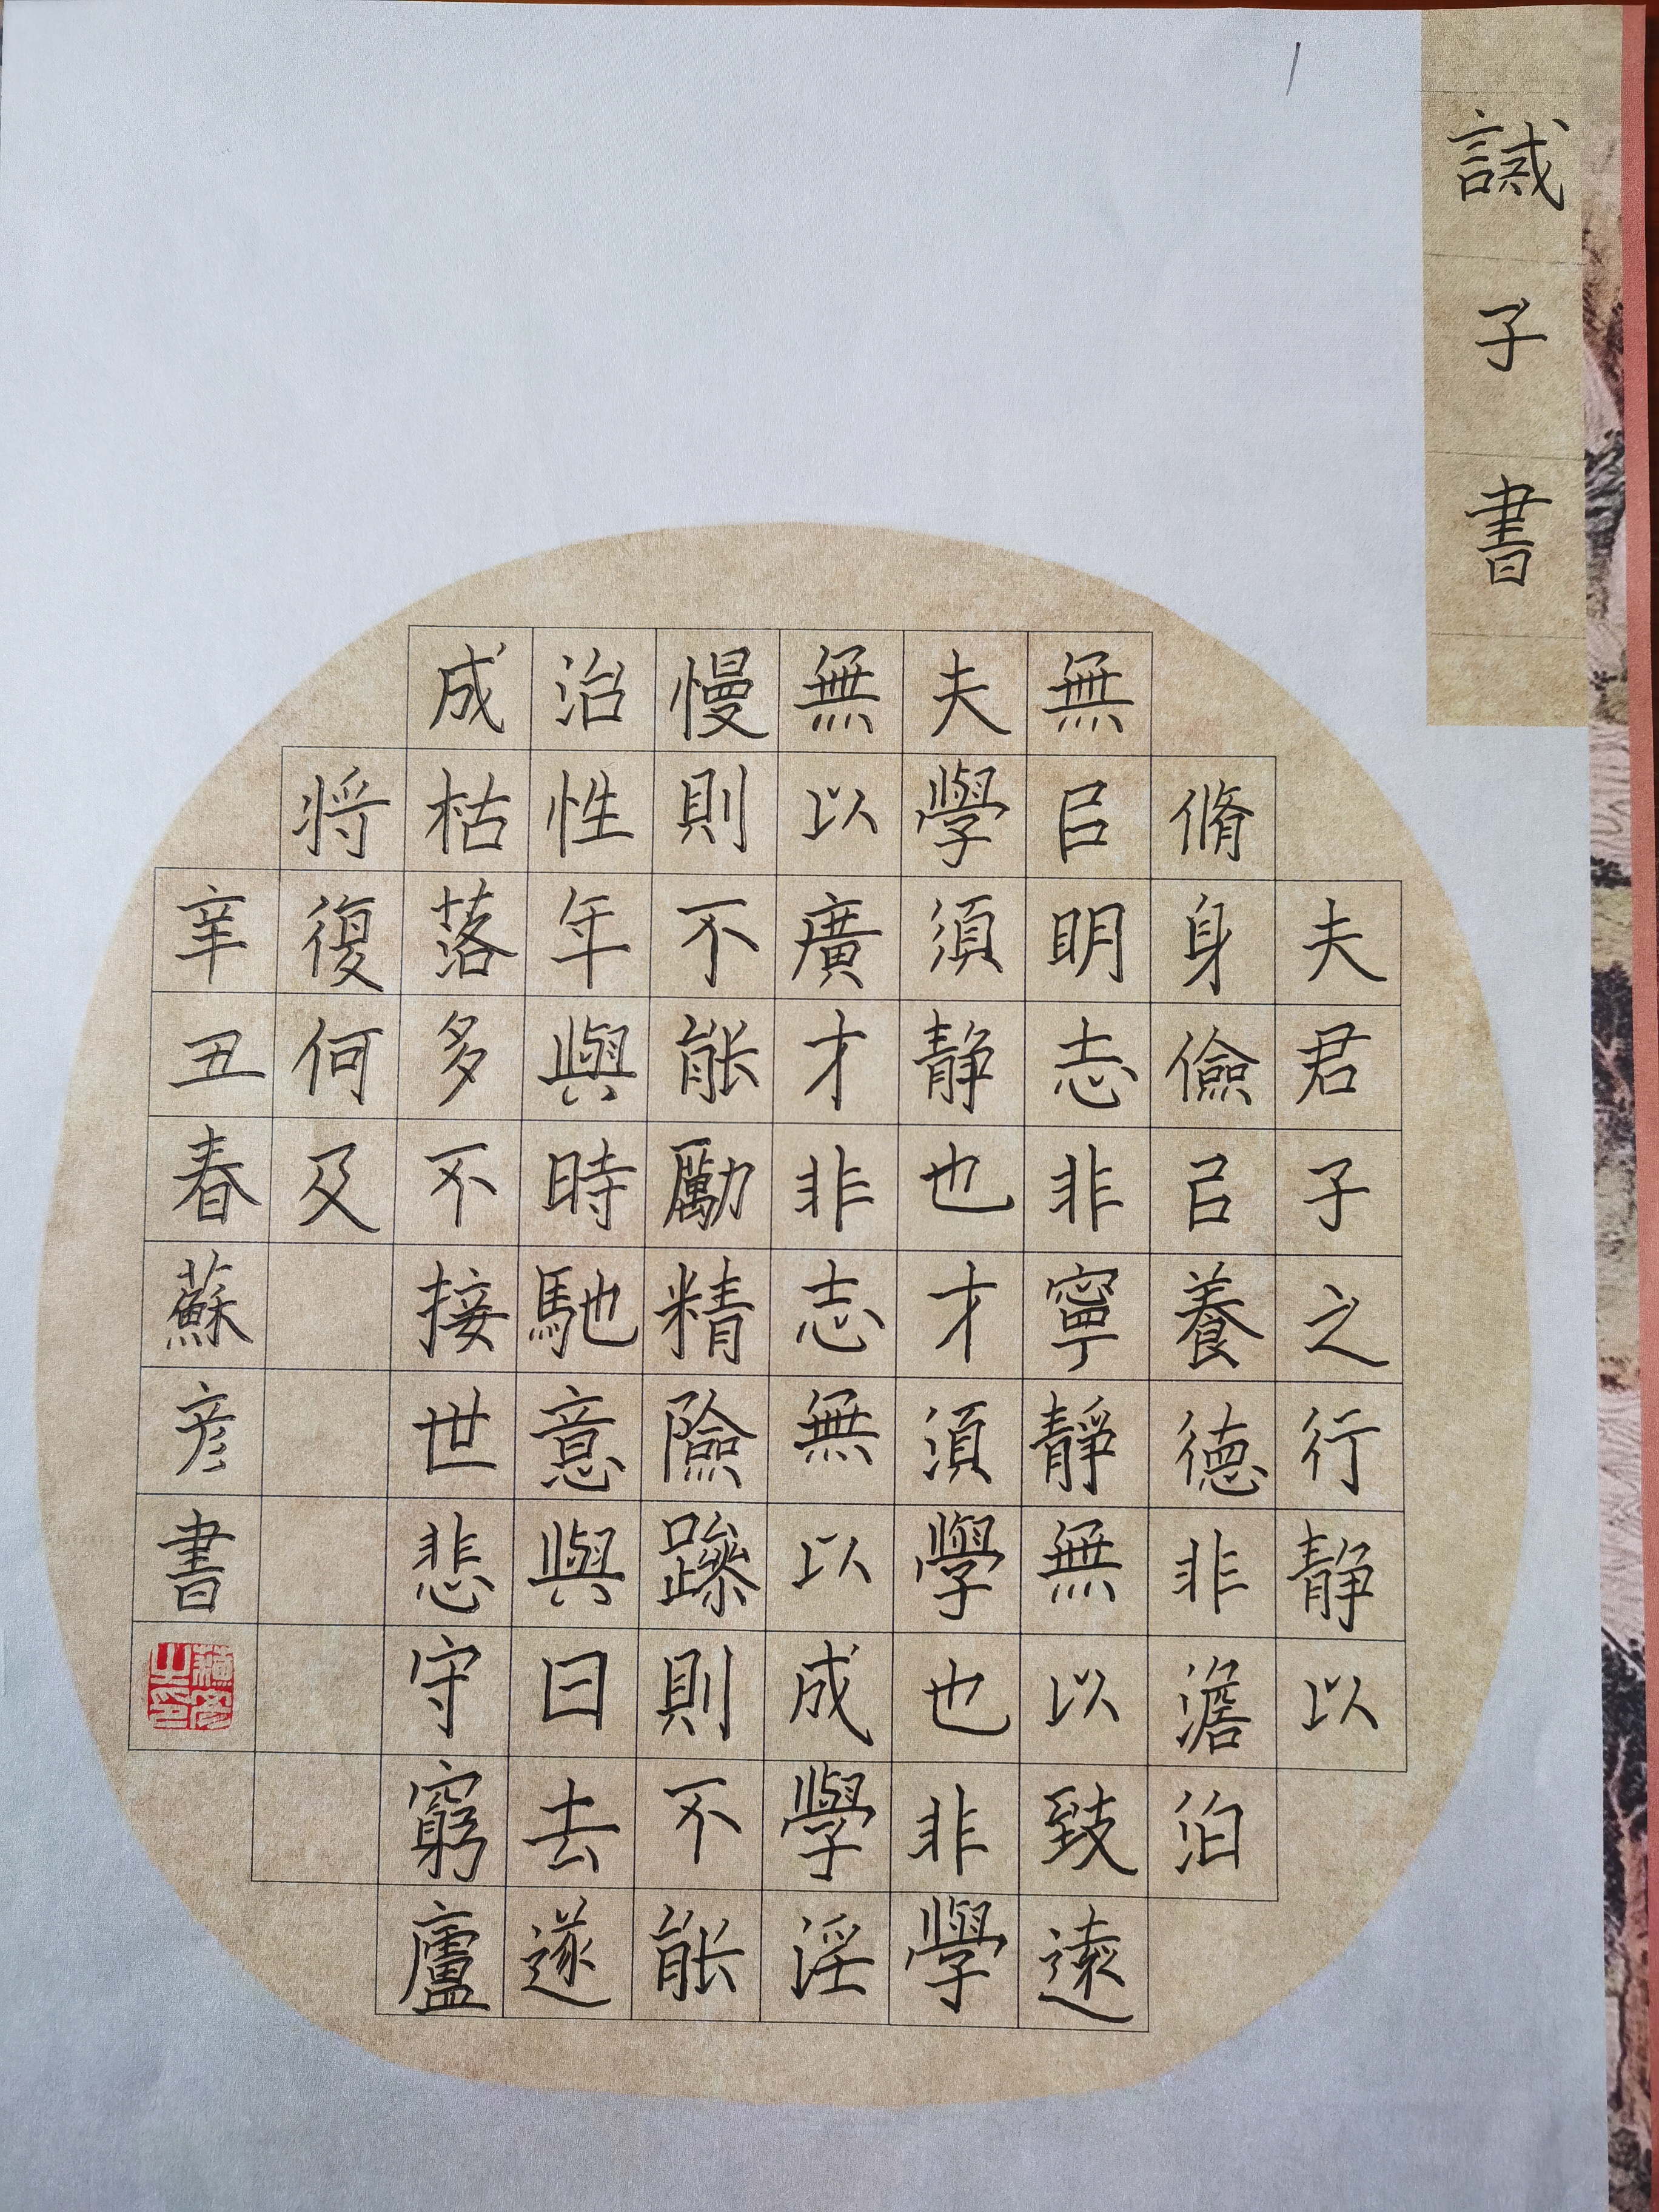 誡子書
夫君子之行静以
脩身儉㠯養徳非澹泊
無㠯眀志非寧靜無以致遠
夫學須静也才須學也非學
無以廣才非志無以成學淫
慢則不能勵精險躁則不能
治性年與時馳意與日去遂
成枯落多不接世悲守窮廬
将復何及
辛丑春蘇彦書